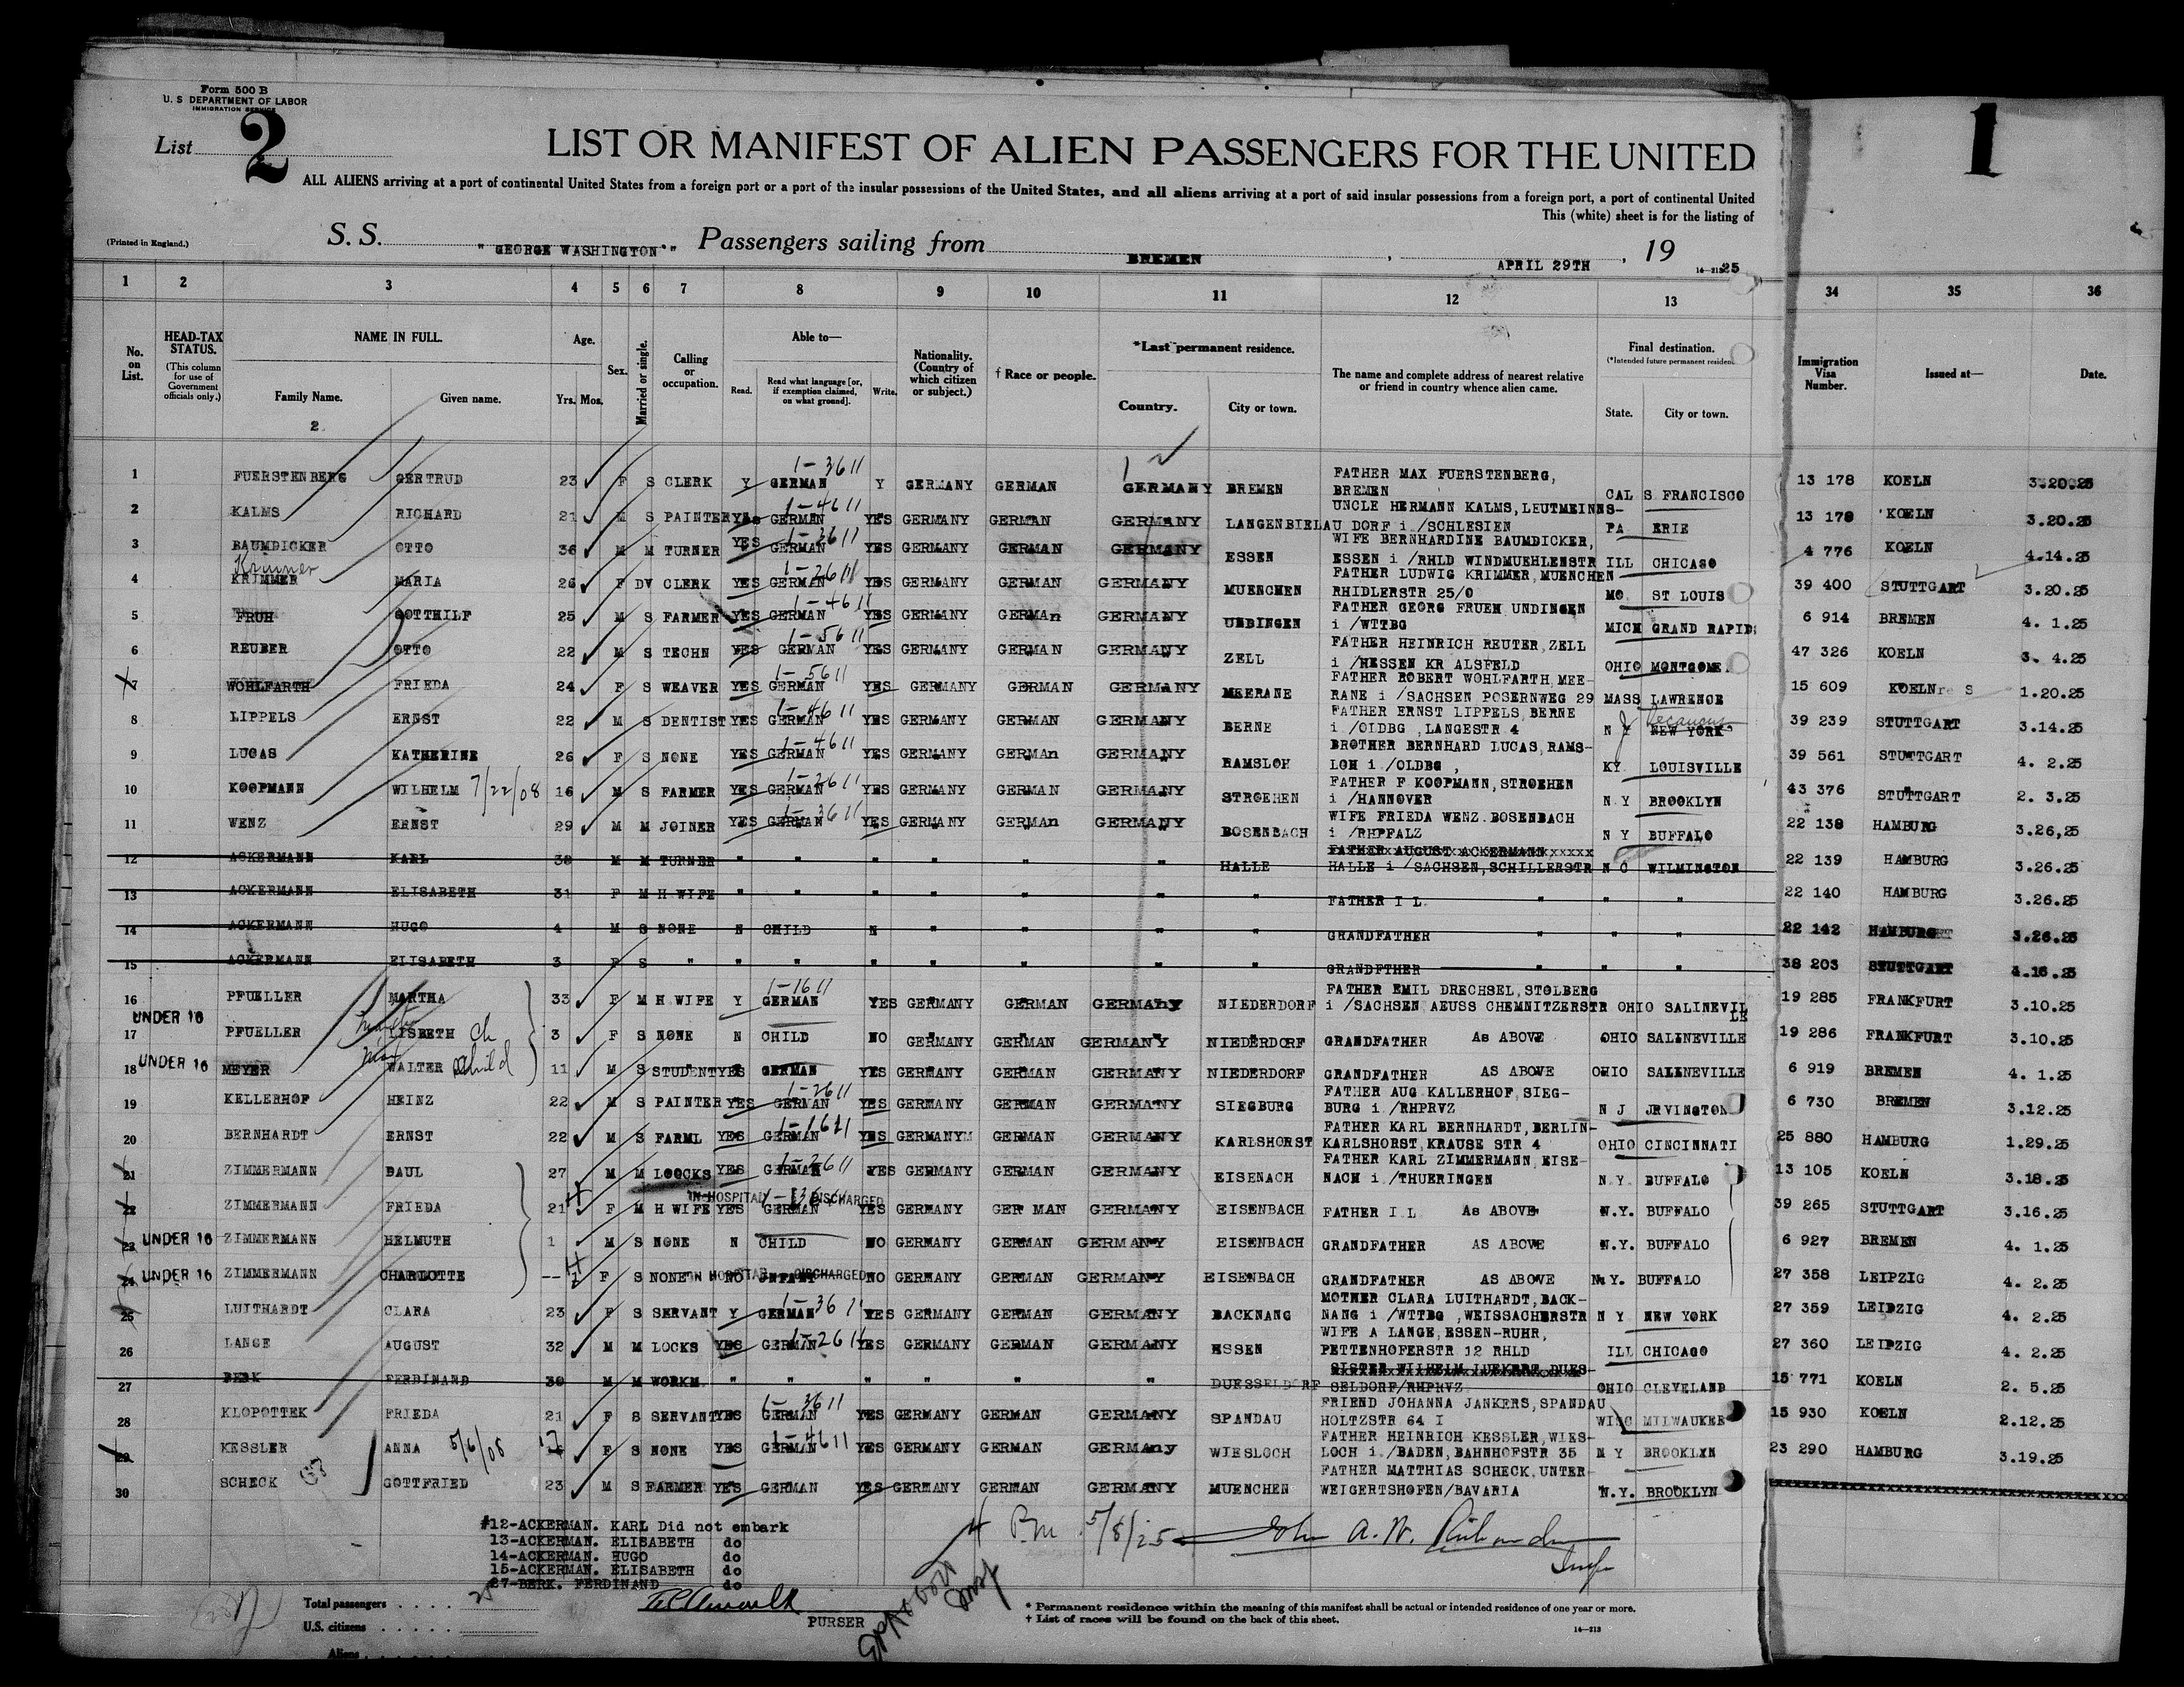 Form 500 B
U. S DEPARTMENT OF LABOR
IMMIGRATION SERVICE
List 2
LIST OR MANIFEST OF ALIEN PASSENGERS FOR THE UNITED
1
ALL ALIENS arriving at a port of continental United States from a foreign port or a port of the insular possessions of the United States, and all aliens arriving at a port of said insular possessions from a foreign port, a port of continental United
This (white) sheet is for the listing of
(Printed in England.)
S. S. "GEORGE WASHINGTON" Passengers sailing from BREMEN, APRIL 29TH, 1925
14—213
1 2 3 4 5 6 7 8 9 10 11 12 13 34 35 36
No. on List.
HEAD-TAX STATUS. (This column for use of Government officials only.)
NAME IN FULL.
Family Name. Given name.
2
Age. Yrs. Mos.
Sex.
Married or single.
Calling or occupation.
Able to—
Read. Read what language [or, if exemption claimed, on what ground]. Write.
Nationality. (Country of which citizen or subject.)
† Race or people.
*Last permanent residence.
Country. City or town.
The name and complete address of nearest relative or friend in country whence alien came.
Final destination.
(*Intended future permanent residence
State. City or town.
Immigration Visa Number.
Issued at—
Date.
1 FUERSTENBERG GERTRUD 23 F S CLERK Y GERMAN 1-3611 Y GERMANY GERMAN GERMANY BREMEN FATHER MAX FUERSTENBERG, BREMEN CAL S FRANCISCO 13 178 KOELN 3.20.25
2 KALMS RICHARD 21 M S PAINTER YES GERMAN 1-4611 YES GERMANY GERMAN GERMANY LANGENBIELAU UNCLE HERMANN KALMS, LEUTMEINNS-DORF i /SCHLESIEN PA ERIE 13 179 KOELN 3.20.25
3 BAUMDICKER OTTO 36 M M TURNER YES GERMAN 1-3611 YES GERMANY GERMAN GERMANY ESSEN WIFE BERNHARDINE BAUMDICKER, ESSEN i /RHLD WINDMUEHLENSTR ILL CHICAGO 4 776 KOELN 4.14.25
4 KRIMMER MARIA 26 F DV CLERK YES GERMAN 1-2611 YES GERMANY GERMAN GERMANY MUENCHEN FATHER LUDWIG KRIMMER, MUENCHEN RHIDLERSTR 25/0 MO ST LOUIS 39 400 STUTTGART 3.20.25
5 FRUH GOTTHILF 25 M S FARMER YES GERMAN 1-4611 YES GERMANY GERMAn GERMANY UNDINGEN FATHER GEORG FRUEH UNDINGEN i /WTTBG MICH GRAND RAPIDS 6 914 BREMEN 4. 1.25
6 REUBER OTTO 22 M S TECHN YES GERMAN 1-5611 YES GERMANY GERMAN GERMANY ZELL FATHER HEINRICH REUTER, ZELL i /HESSEN KR ALSFELD OHIO MONTGOME. 47 326 KOELN 3. 4.25
7 WOHLFARTH FRIEDA 24 F S WEAVER YES GERMAN 1-5611 YES GERMANY GERMAN GERMANY MEERANE FATHER ROBERT WOHLFARTH, MEE-RANE i /SACHSEN POSERNWEG 29 MASS LAWRENCE 15 609 KOELN 1.20.25
8 LIPPELS ERNST 22 M S DENTIST YES GERMAN 1-4611 YES GERMANY GERMAN GERMANY BERNE FATHER ERNST LIPPELS, BERNE i /OIDBG , LANGESTR 4 N Y NEW YORK 39 239 STUTTGART 3.14.25
9 LUCAS KATHERINE 26 F S NONE YES GERMAN 1-4611 YES GERMANY GERMAn GERMANY RAMSLOH BROTHER BERNHARD LUCAS, RAMS-LOH i /OLDBG , KY LOUISVILLE 39 561 STUTTGART 4. 2.25
10 KOOPMANN WILHELM 7/22/08 16 M S FARMER YES GERMAN 1-2611 YES GERMANY GERMAN GERMANY STROEHEN FATHER F KOOPMANN, STROEHEN i /HANNOVER N Y BROOKLYN 43 376 STUTTGART 2. 3.25
11 WENZ ERNST 29 M M JOINER YES GERMAN 1-3611 YES GERMANY GERMAn GERMANY BOSENBACH WIFE FRIEDA WENZ. BOSENBACH i /RHPFALZ N Y BUFFALO 22 138 HAMBURG 3.26,25
12 ACKERMANN KARL 38 M M TURNER " " " " " " HALLE FATHER AUGUST ACKERMANN, HALLE i /SACHSEN, SCHILLERSTR N C WILMINGTON 22 139 HAMBURG 3.26.25
13 ACKERMANN ELISABETH 31 F M H WIFE " " " " " " FATHER I L " " " 22 140 HAMBURG 3.26.25
14 ACKERMANN HUGO 4 M S NONE N CHILD N " " " GRANDFATHER " " " 22 142 HAMBURG 3.26.25
15 ACKERMANN ELISABETH 3 F S " " " " " " " GRANDFTHER " " 38 203 STUTTGART 4.16.25
16 PFUELLER MARTHA 33 F M H WIFE Y GERMAN 1-1611 YES GERMANY GERMAN GERMAny NIEDERDORF FATHER EMIL DRECHSEL, STOLBERG i /SACHSEN AEUSS CHEMNITZERSTR OHIO SALINEVILLE 19 285 FRANKFURT 3.10.25
17 UNDER 16 PFUELLER LISBETH ch 3 F S NONE N CHILD NO GERMANY GERMAN GERMANY NIEDERDORF GRANDFATHER As ABOVE OHIO SALINEVILLE 19 286 FRANKFURT 3.10.25
18 UNDER 16 MEYER WALTER child 11 M S STUDENT YES GERMAN YES GERMANY GERMAN GERMANY NIEDERDORF GRANDFATHER AS ABOVE OHIO SALINEVILLE 6 919 BREMEN 4. 1.25
19 KELLERHOF HEINZ 22 M S PAINTER YES GERMAN 1-2611 YES GERMANY GERMAN GERMANY SIEGBURG FATHER AUG KALLERHOF, SIEG-BURG i /RHPRVZ N J JRVINGTON 6 730 BREMEN 3.12.25
20 BERNHARDT ERNST 22 M S FARML YES GERMAN YES GERMANY GERMAN GERMANY KARLSHORST FATHER KARL BERNHARDT, BERLIN-KARLSHORST, KRAUSE STR 4 OHIO CINCINNATI 25 880 HAMBURG 1.29.25
21 ZIMMERMANN PAUL 27 M M LOOCKS YES GERMAN 1-2611 YES GERMANY GERMAN GERMANY EISENACH FATHER KARL ZIMMERMANN, EISE-NACH i /THUERINGEN N.Y. BUFFALO 13 105 KOELN 3.18.25
22 ZIMMERMANN FRIEDA 21 F M H WIFE YES GERMAN IN HOSPITAL DISCHARGED YES GERMANY GER MAN GERMANY EISENBACH FATHER I L As ABOVE N.Y. BUFFALO 39 265 STUTTGART 3.16.25
23 UNDER 16 ZIMMERMANN HELMUTH 1 M S NONE N CHILD NO GERMANY GERMAN GERMANY EISENBACH GRANDFATHER AS ABOVE N.Y. BUFFALO 6 927 BREMEN 4. 1.25
24 UNDER 16 ZIMMERMANN CHARLOTTE -- F S NONE IN HOSPITAL NO INFANT DISCHARGED NO GERMANY GERMAN GERMANY EISENBACH GRANDFATHER AS ABOVE N.Y. BUFFALO 27 358 LEIPZIG 4. 2.25
25 LUITHARDT CLARA 23 F S SERVANT Y GERMAN 1-3611 YES GERMANY GERMAN GERMANY BACKNANG MOTHER CLARA LUITHARDT, BACK-NANG i /WTTBG , WEISSACHERSTR N Y NEW YORK 27 359 LEIPZIG 4. 2.25
26 LANGE AUGUST 32 M M LOCKS YES GERMAN 1-2611 YES GERMANY GERMAN GERMANY ESSEN WIFE A LANGE, ESSEN-RUHR, PETTENHOFERSTR 12 RHLD ILL CHICAGO 27 360 LEIPZIG 4. 2.25
27 BERK FERDINAND 30 M M WORKM. " " " " " " DUESSELDORF SISTER WILHELM LUEKERT, DUES-SELDORF/RHPRVZ OHIO CLEVELAND 15 771 KOELN 2. 5.25
28 KLOPOTTEK FRIEDA 21 F S SERVANT YES GERMAN 1-3611 YES GERMANY GERMAN GERMANY SPANDAU FRIEND JOHANNA JANKERS, SPANDAU HOLTZSTR 64 I WISC MILWAUKEE 15 930 KOELN 2.12.25
29 KESSLER ANNA 5/6/08 F S NONE YES GERMAN 1-4611 YES GERMANY GERMAN GERMAny WIESLOCH FATHER HEINRICH KESSLER, WIES-LOCH i /BADEN, BAHNHOFSTR 35 N Y BROOKLYN 23 290 HAMBURG 3.19.25
30 SCHECK GOTTFRIED 23 M S FARMER YES GERMAN YES GERMANY GERMAN GERMANY MUENCHEN FATHER MATTHIAS SCHECK, UNTER-WEIGERTSHOFEN/BAVARIA N.Y. BROOKLYN
#12-ACKERMAN. KARL Did not embark
13-ACKERMAN. ELISABETH do
14-ACKERMAN. HUGO do
15-ACKERMAN. ELISABETH do
27-BERK. FERDINAND do
5/8/25 John A. W. Richardson
Insp
Total passengers . . . . 25
U.S. citizens . . . . .
Aliens . . . . . .
PURSER
* Permanent residence within the meaning of this manifest shall be actual or intended residence of one year or more.
† List of races will be found on the back of this sheet.
14—213